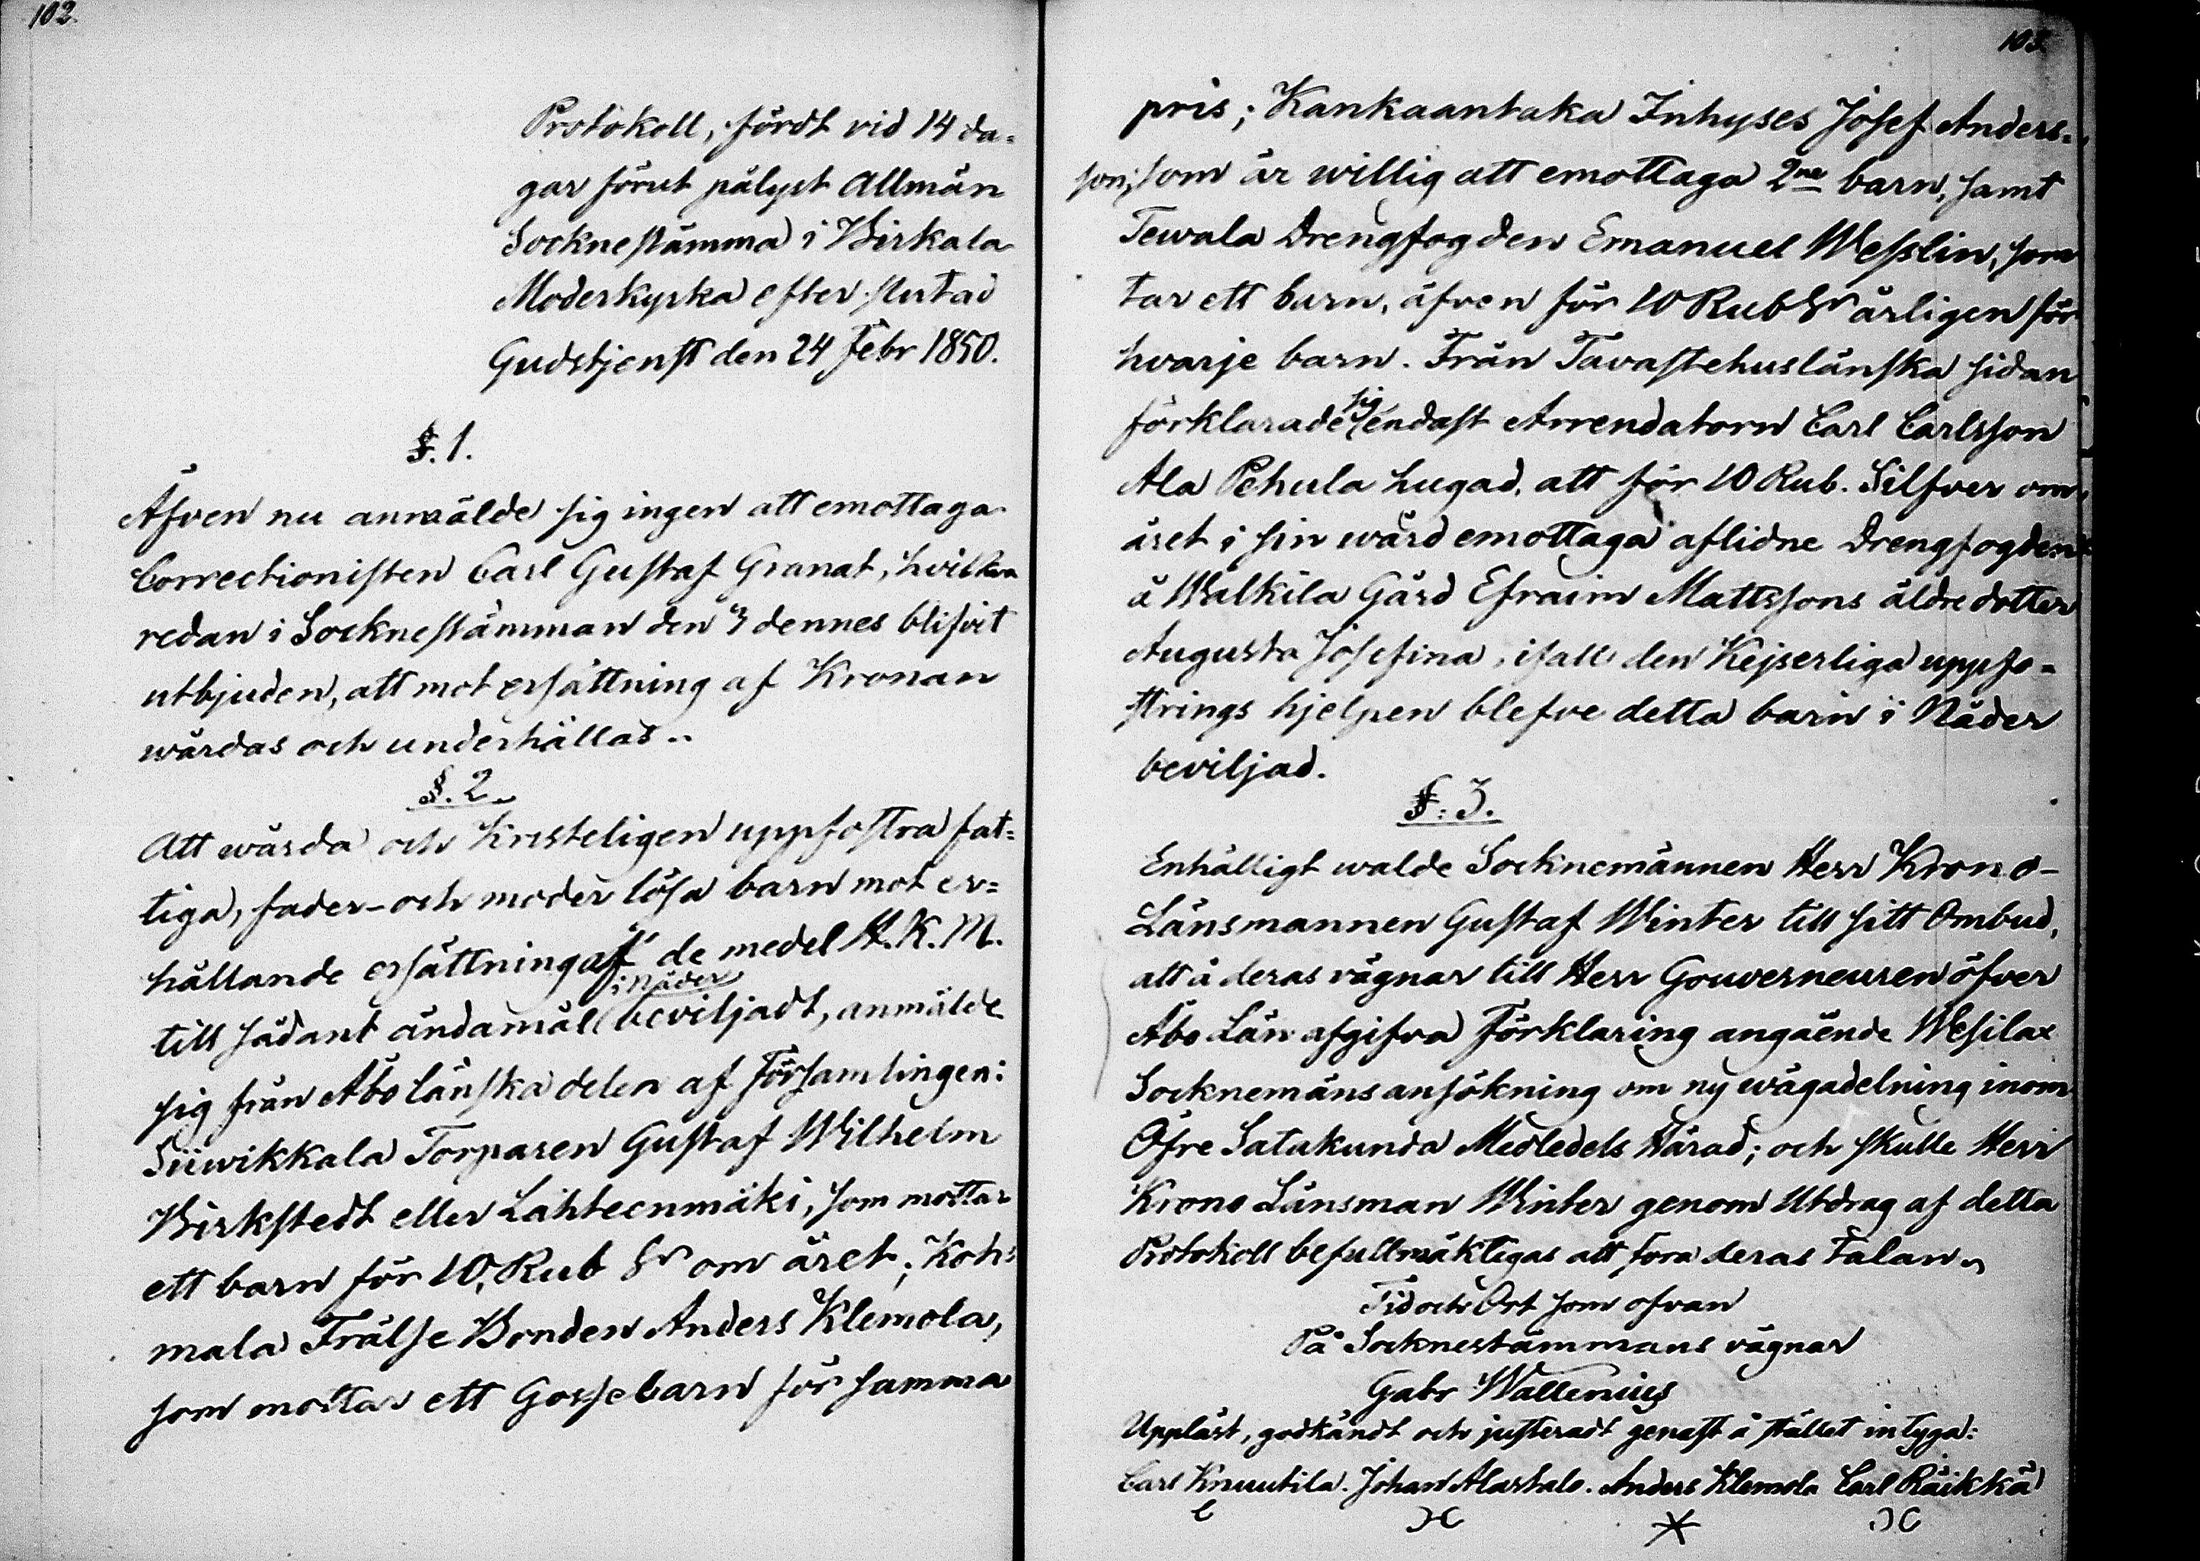 102.
Protokoll, fördt vid 14 da-
gar förut pålyst Allmän
Socknestämma i Birkala
Moderkyrka efter slutad
Gudstjenst den 24 Febr 1850.
§. 1.
Äfven nu anmälde sig ingen att emottaga
Correctionisten Carl Gustaf Granat, hvilken
redan i Socknestämman den 3 dennes blifvit
utbjuden, att mot ersättning af Kronan
wårdas och underhållas.
§. 2.
Att wårda och Kristeligen uppfostra fat=
tiga, fader- och moderlösa barn mot er=
hållande ersättning af de medel H. K. M.
till sådant ändamål i Nåder beviljadt, anmälde
sig från Åbo länska delen af Församlingen:
Siiwikkala Torparen Gustaf Wilhelm
Birkstedt eller Lähteenmäki, som mottar
ett barn för 10, Rub Sr om året; Koh=
mala Frälse Bonden Anders Klemola,
som mottar ett Gossebarn för samma
103.
pris; Kankaantaka Inhyses Josef Anders-
son, som är willig att emottaga 2ne barn, samt
Tewala Drengfogden Emanuel Wesslin, som
tar ett barn, äfven för 10 Rub Sr årligen för
hvarje barn. Från Tavastehuslänska sidan
förklarade sig endast Arrendatorn Carl Carlsson
Ala Pehula hugad, att för 10 Rub. Silfver om
året i sin wård emottaga aflidne Drengfogden
å Walkila Gård Efraim Mattssons äldre dotter
Augusta Josefina, ifall den Kejserliga uppfo-
strings hjelpen blefve detta barn i Nåder
beviljad.
§. 3.
Enhälligt walde Socknemännen Herr Krono-
Länsmannen Gustaf Winter till sitt Ombud,
att å deras vägnar till Herr Gouverneuren öfver
Åbo Län afgifva Förklaring angående Wesilax
Socknemäns ansökning om ny wägadelning inom
Öfre Satakunda Medledels Härad; och skulle Herr
Krono Länsman Winter genom Utdrag af detta
Protokoll befullmäktigas att föra deras talan.
Tid och Ort som ofvan
På Socknestämmans vägnar
Gabr Wallenius
Uppläst, godkändt och justeradt genast å stället intyga:
Carl Knuutila. Johan Alastalo. Anders Klemola Carl Räikkä